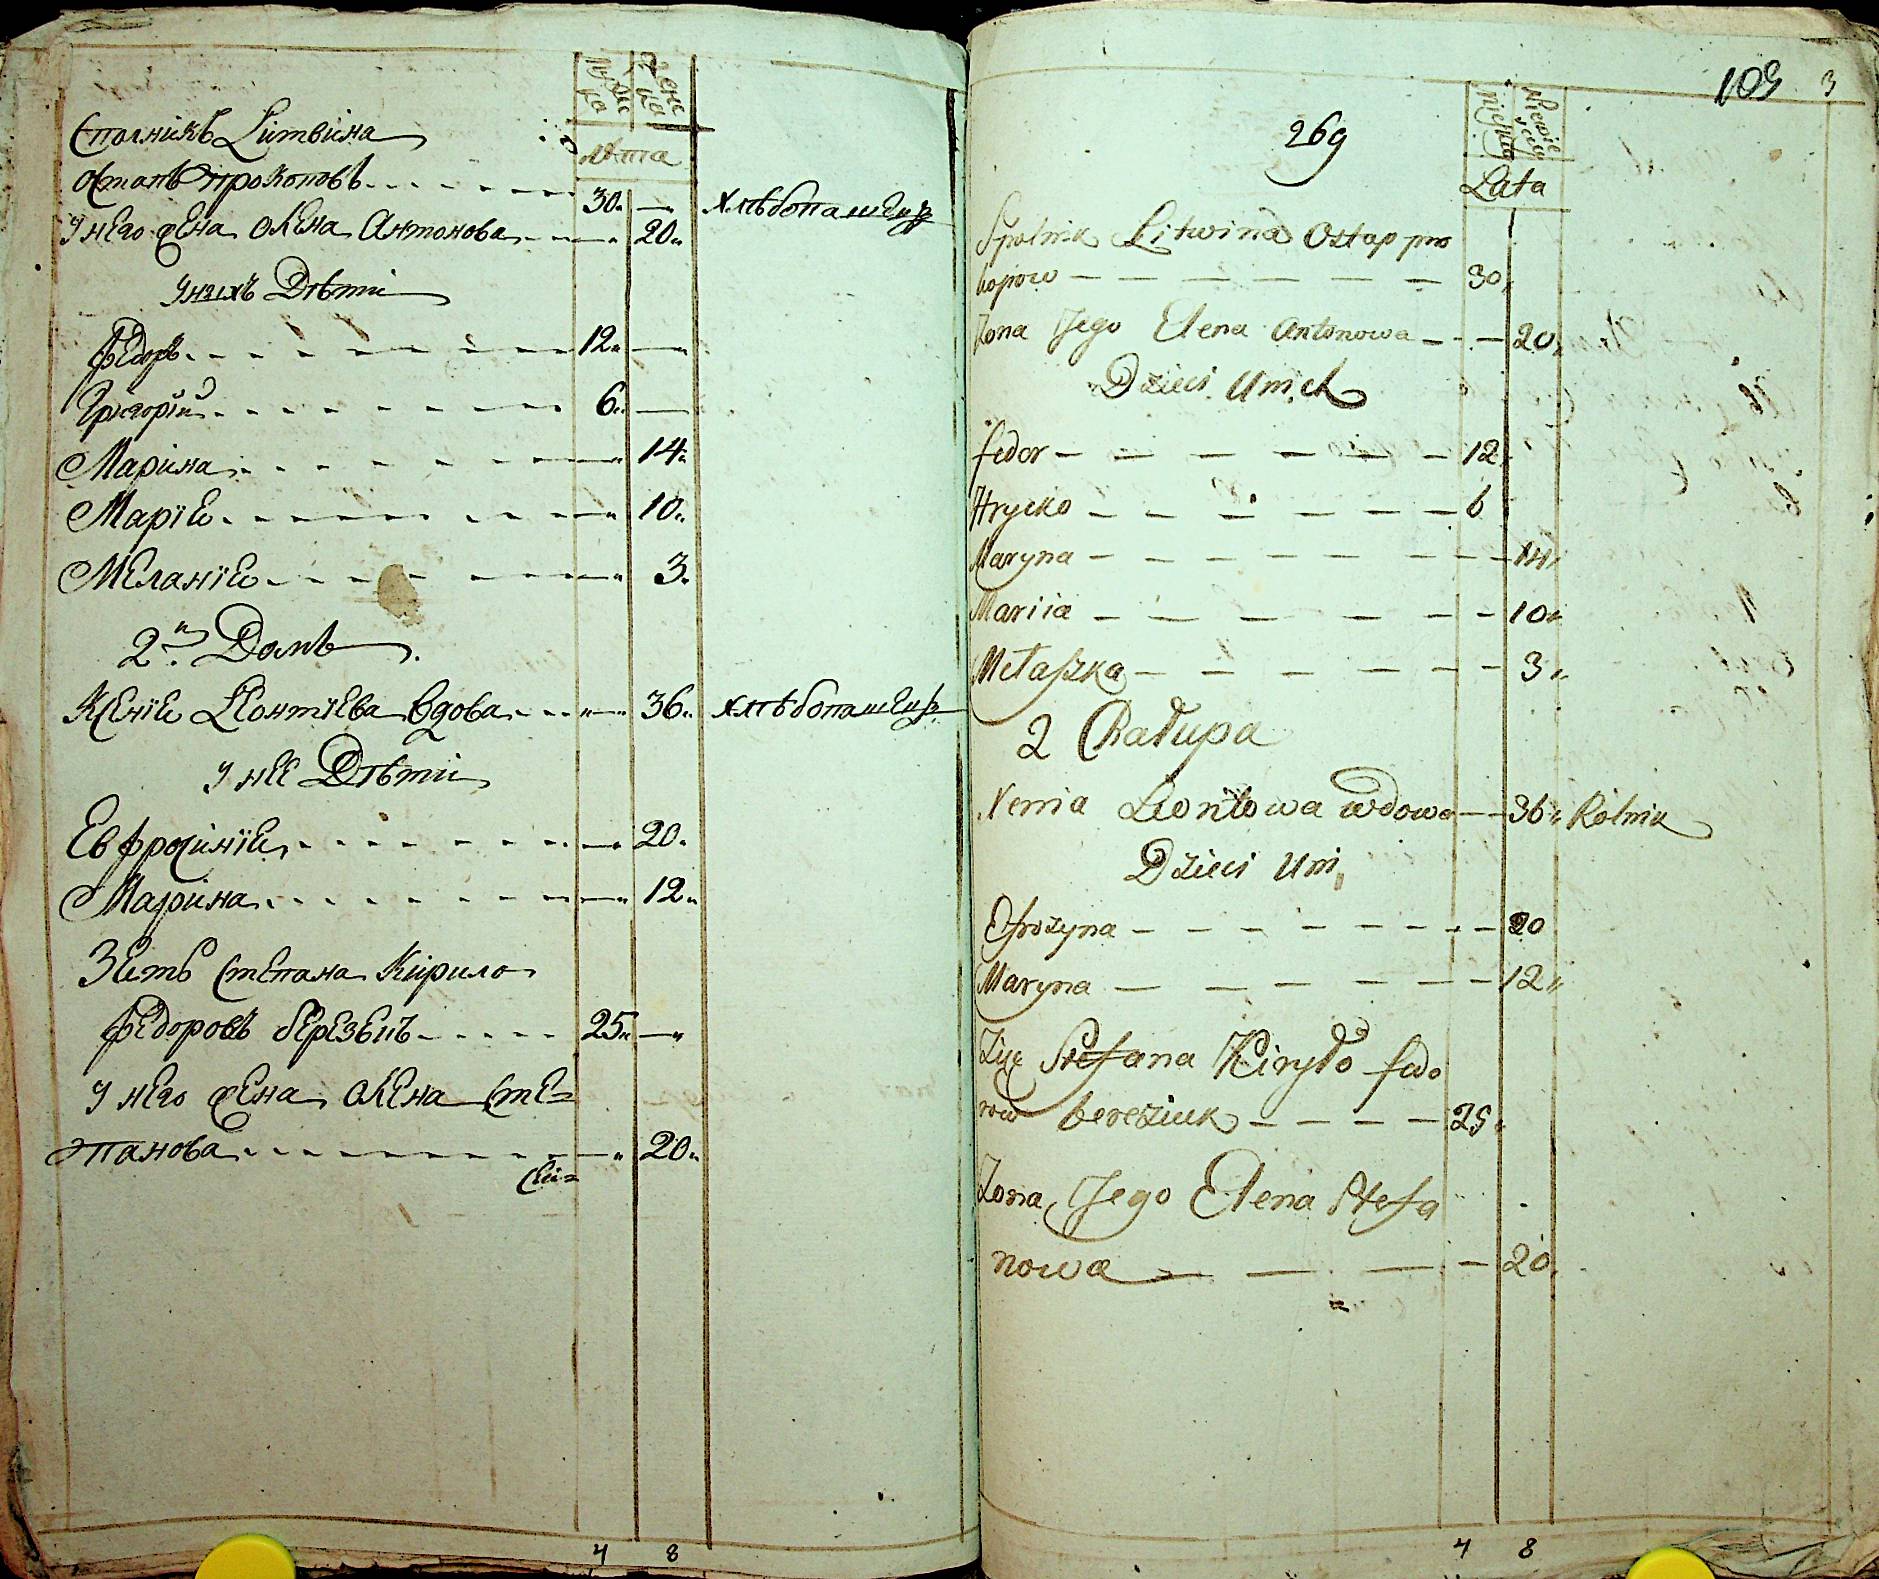 Сполникъ Литвина
Остапъ Прокоповъ 30
лѣта
У него жена Олена Антонова 20
У нихъ Дѣти
Федоръ 12
Григорiй 6
Марина 14
Марiя 10
Меланiя 3
2й Домъ
Ксенiя Леонтiева вдова 36 хлѣбопашецъ
У нее Дѣти
Евфросинiя 20
Марина 12
Зять Степана Кирило
Федоровъ березюкъ 25
У него жена Олена Сте=
панова 20
4 8
109 3
269
Lata
Spolnik Litwina Ostap pro
kopow 30
Zona Jego Elena Antonowa 20
Dzieci U nich
Fedor 12
Hrycko 6
Maryna 14
Mariia 10
Melaszka 3
2 Chałupa
Xenia Leontowa wdowa 36 Rolnik
Dzieci U ni
Ofrozyna 20
Maryna 12
Zięc Stefana Kiryło fedo
row bereziuk 25
Zona Jego Elena Stefa
nowa 20
4 8